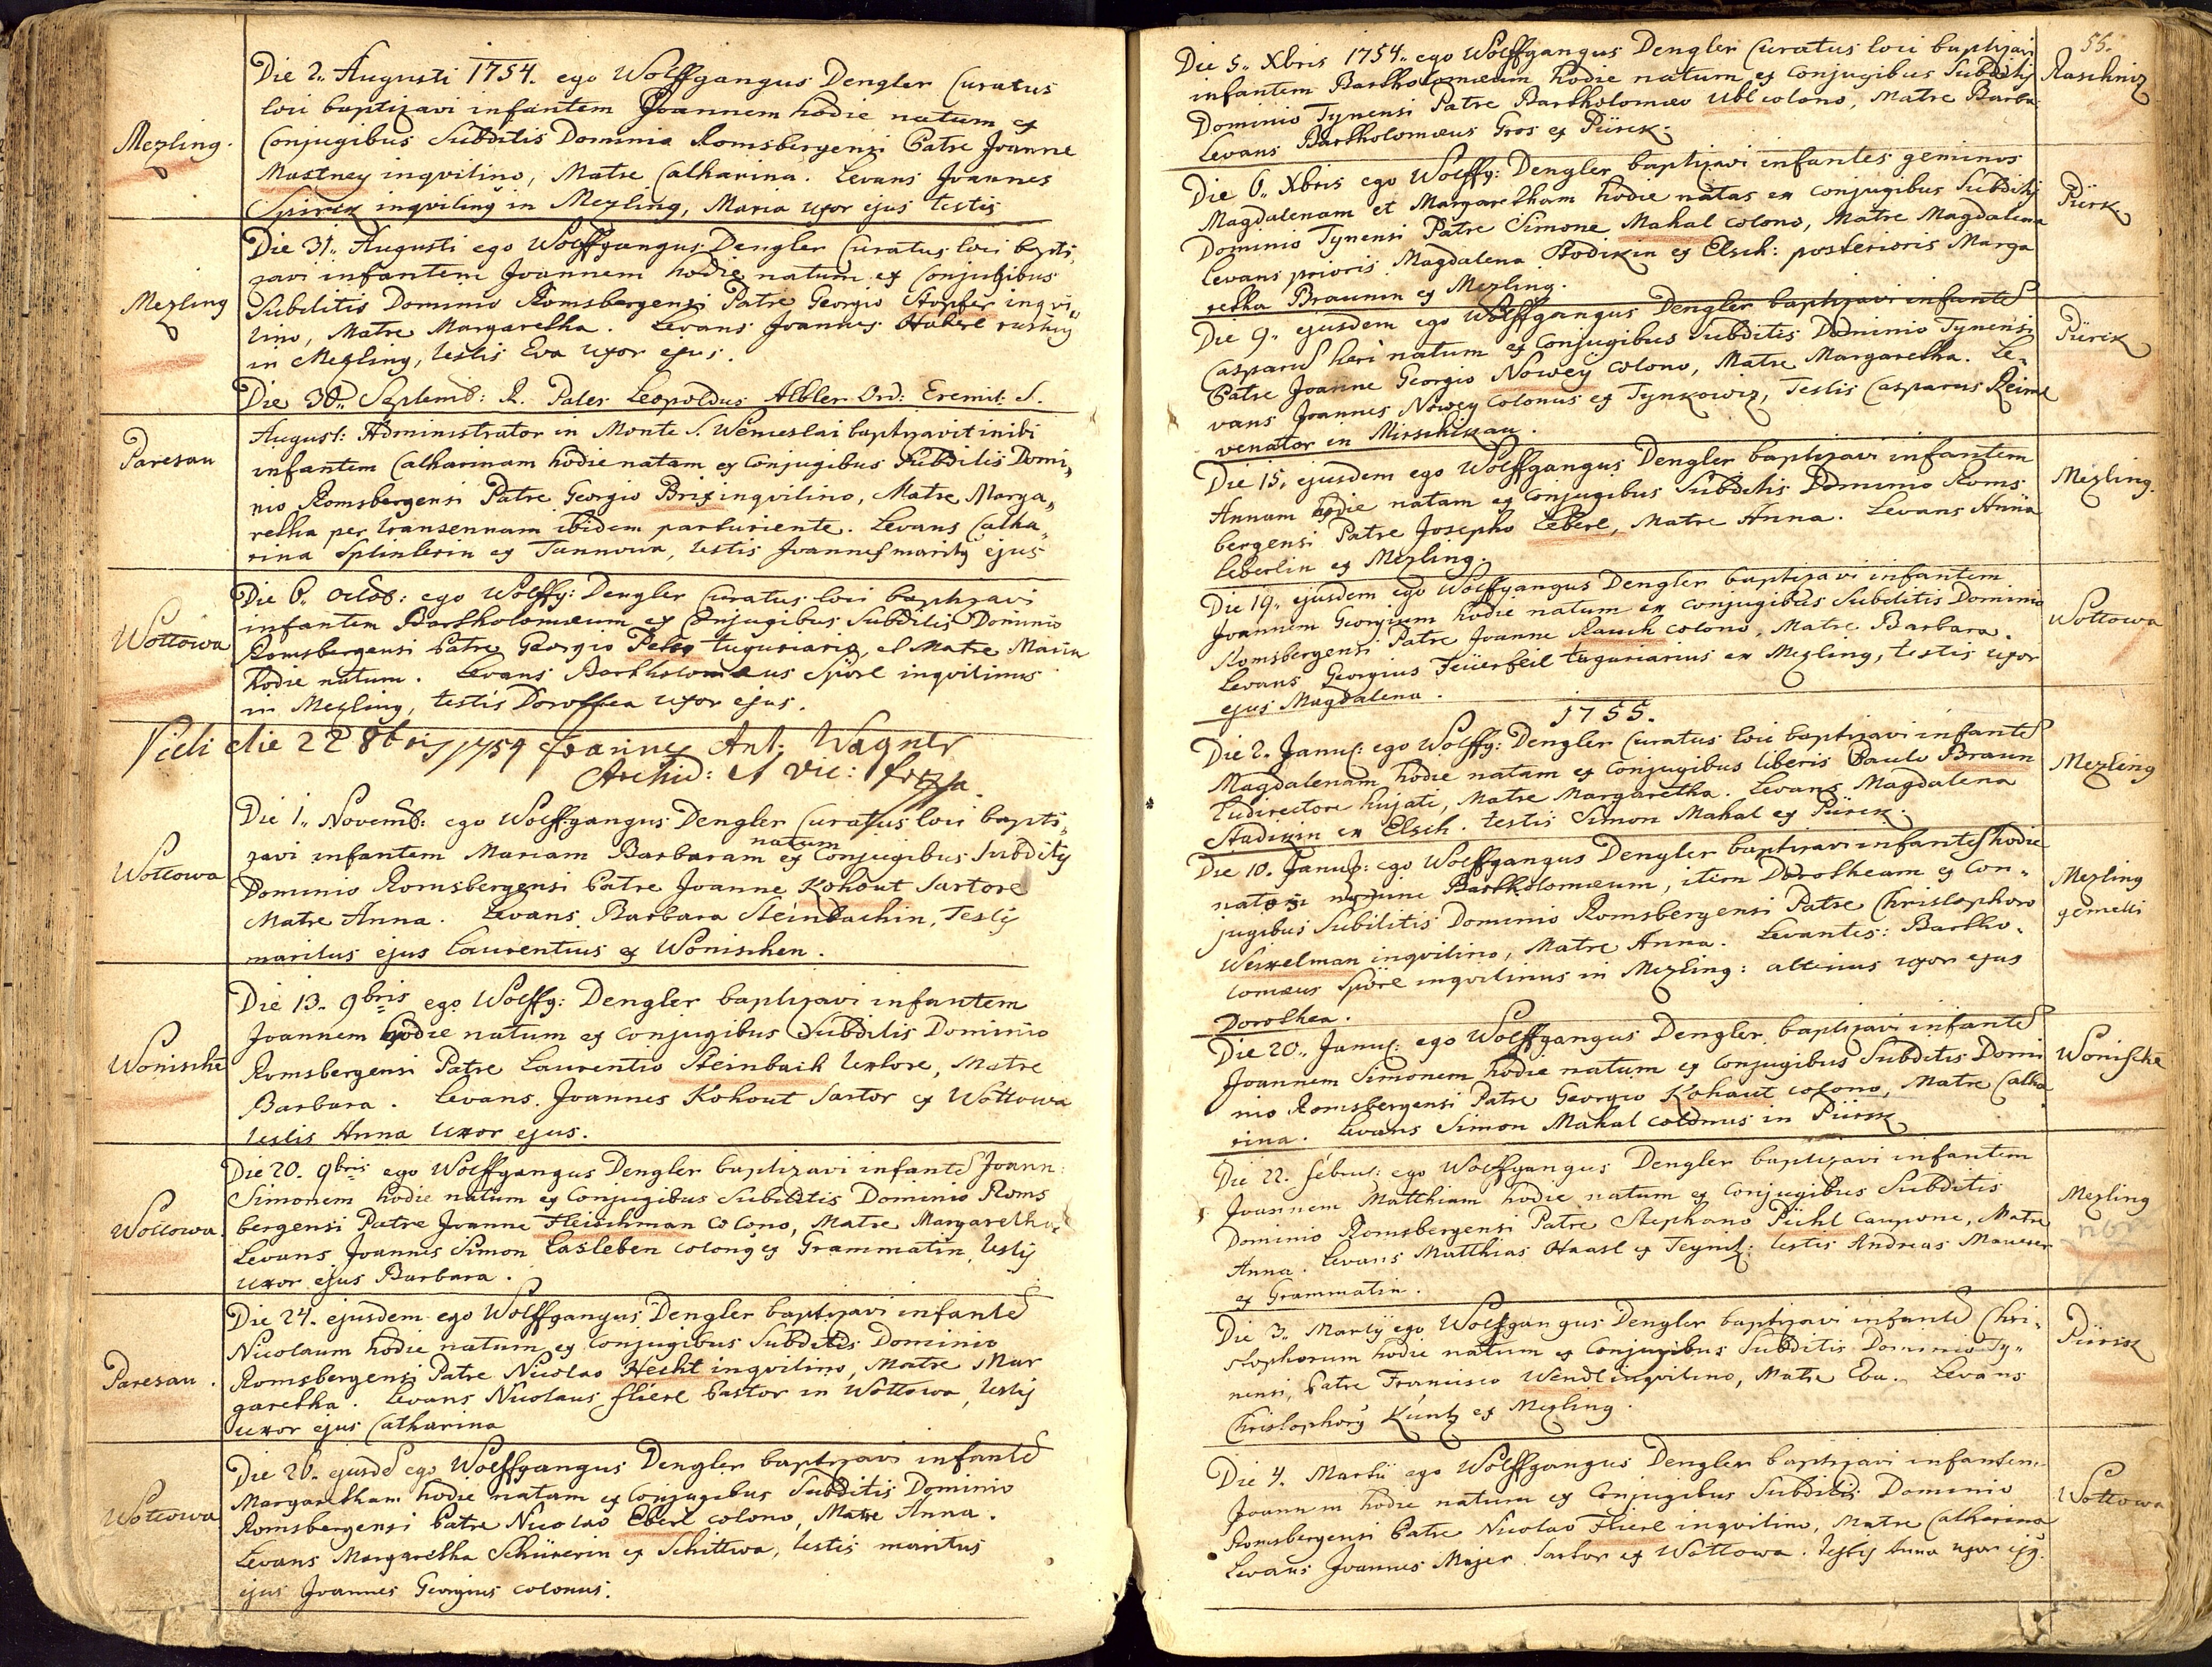 Die 2. Augusti 1754. ego Wolffgangus Dengler Curatus
loci baptizavi infantem Joannem hodie natum ex
Mezling.
Conjugibus Subditis Dominio Romsbergensi Patre Joanne
Mastney inqvilino, Matre Catharina. Levans Joannes
Spirck inqviling in Mezling, Maria uxor ejus testis
Die 31. Augusti ego Wolffgangus Dengler Curatus loci bapti,
zavi infantem Joannem hodie natum ex Conjubibus
Mezling
Subditis Dominio Romsbergensi Patre Georgio Stopfer inqvi
lino, Matre Margaretha. Levans Joannes Haberl
in Mezling, testis Eva uxor ejus.
Die 30. Septemb: R. Pater Leopoldus Albler Ord: Eremit: S.
August: Administrator in Monte S. Wenceslai baptizavit inibi
Paresau
infantem Catharinam hodie natam ex Conjugibus Subditis Domi,,
nio Romsbergensi Patre Georgio Brix inqvilino, Matre Marga,,
retha per transennam ibidem parturiente. Levans Catha,,
rina Splinterin ex Tannowa, testis Joannes marity ejus
Die 6. Octob: ego Wolffg: Dengler Curatus loci baptizavi
infantem Bartholomæum ex Conjugibus Subditis Dominio
Wottowa
Romsbergensi Patre Georgio tuguriario, et Matre Maria
hodie natum. Levans Bartholomæus Spörl inqvilinus
in Mezling, testis Dorothea uxor ejus.
Vidi die 22 8bris 1754 Joannes Ant: Wagner
Archid: et Vic:
Die 1. Novemb: ego Wolffgangus Dengler Curatus loci bapti,
natum
zavi infantem Mariam Barbaram ex Conjugibus Subdity
Wottowa
Dominio Romsbergensi Patre Joanne Kohout Sartore
Matre Anna. Levans Barbara Steinbachin, Testis
maritus ejus Laurentius ex Wonischen.
Die 13. 9bris ego Wolffg: Dengler baptizavi infantem
Joannem hodie natum ex Conjugibus Subditis Dominio
Wonische
Romsbergensi Patre Laurentio Steinbach textore, Matre
Barbara. Levans Joannes Kohout Sartor ex Wottowa
testis Anna uxor ejus.
Die 20. 9bris ego Wolffgangus Dengler baptizavi infante Joann:
Simonem hodie natum ex Conjugibus Subditis Dominio Roms
Wottowa.
bergensi Patre Joanne Fleischman Colono, Matre Margaretha.
Levans Joannes Simon Lasleben colong ex Grammatin, testy
uxor ejus Barbara.
Die 24. ejusdem ego Wolffgangus Dengler baptizavi infante
Nicolaum hodie natum ex Conjugibus Subditis Dominio
Paresau.
Romsbergensi Patre Nicolao Hecht inqvilino, Matre Mar
garetha. Levans Nicolaus Flierl Pastor in Wottowa, testy
uxor ejus Catharina
Die 26. ejusde ego Wolffgangus Dengler baptizavi infante
Margaretham hodie natam ex Conjugibus Subditis Dominio
Wottowa
Romsbergensi Patre Nicolao Eberl colono, Matre Anna.
Levans Margaretha Schürerin ex Schittwa, testis maritus
ejus Joannes Georgius colonus.
55.
Die 5. Xbris 1754. ego Wolffgangus Dengler Curatus loci baptizavi
Raschniz
infantem Bartholomæum hodie natum ex Conjugibus Subditis
Dominio Tynensi Patre Bartholomæo Ubl colono, Matre Barba.
Levans Bartholomæus Gros ex Pürck.
Die 6. Xbris ego Wolffg: Dengler baptizavi infantes geminos
Pürk
Magdalenam et Margaretham hodie natas ex conjugibus Subditis
Dominio Tynensi Patre Simone Mahal colono, Matre Magdalena
Levans prioris Magdalena ex Elsch: posterioris Marga
retha Braunin ex Mezling.
Die 9. ejusdem ego Wolffgangus Dengler baptizavi infante
Pürck
Casparu heri natum ex Conjugibus Subditis Dominio Tynensi
Patre Joanne Georgio Nowey colono, Matre Margaretha. Le,
vans Joannes Nowey Colonus ex Tynkowiz, Testis Casparus Reiml
venator in Mirschikau.
Die 15. ejusdem ego Wolffgangus Dengler baptizavi infantem
Mezling.
Annam hodie natam ex Conjugibus Subditis Dominio Roms
bergensi Patre Josepho Leberl, Matre Anna. Levans Anna
Leberlin ex Mezling.
Die 19. ejusdem ego Wolffgangus Dengler baptizavi infantem
Wottowa
Joannem Georgium hodie natum ex conjugibus Subditis Dominio
Romsbergensi Patre Joanne Rauch colono, Matre Barbara.
Levans Georgius Feüerfeil tuguriarius ex Mezling, testis uxor
ejus Magdalena.
1755.
Die 2. Januar: ego Wolffg: Dengler Curatus loci baptizavi infante
Mezling
Magdalenam hodie natam ex Conjugibus liberis Paulo Braun
Ludirectore hujate, Matre Margaretha. Levans Magdalena
ex Elsch. testis Simon Mahal ex Pürck.
Die 10. Januar: ego Wolffgangus Dengler baptizavi infantes hodie
Mezling
gemelli
natos nomine Bartholomæum, item Dorotheam ex Con,,
jugibus Subditis Dominio Romsbergensi Patre Christophoro
Weixelman inqvilino, Matre Anna. Levantes: Bartho,
lomæus Spörl inqvilinus in Mezling: alterius uxor ejus
Dorothea.
Die 20. Januar: ego Wolffgangus Dengler baptizavi infante
Wonische
Joannem Simonem hodie natum ex Conjugibus Subditis Domi
nio Romsbergensi Patre Georgio Kohaut colono, Matre Catha
rina. Levans Simon Mahal colonus in Pürck
Die 22. Februar: ego Wolffgangus Dengler baptizavi infantem
Mezling
Joannem Matthiam hodie natum ex Conjugibus Subditis
Dominio Romsbergensi Patre Stephano Pühl Caupone, Matre
Anna. Levans Matthias Haasl ex Teyniz: testis Andreas Maurer
ex Grammatin.
Die 3. Marty ego Wolffgangus Dengler baptizavi infante Chri,
Pürck
stophorum hodie natum ex Conjugibus Subditis Dominio Ty,,
nensi, Patre Francisco Wendl inqvilino, Matre Eva. Levans
Christophorg Kuntz ex Mezling.
Die 4. Martii ego Wolffgangus Dengler baptizavi infantem
Wottowa
Joannem hodie natum ex Conjugibus Subditis Dominio
Romsbergensi Patre Nicolao Flierl inqvilino, Matre Catharina
Levans Joannes Majer Sartor ex Wottowa. testis Anna uxor ejg.